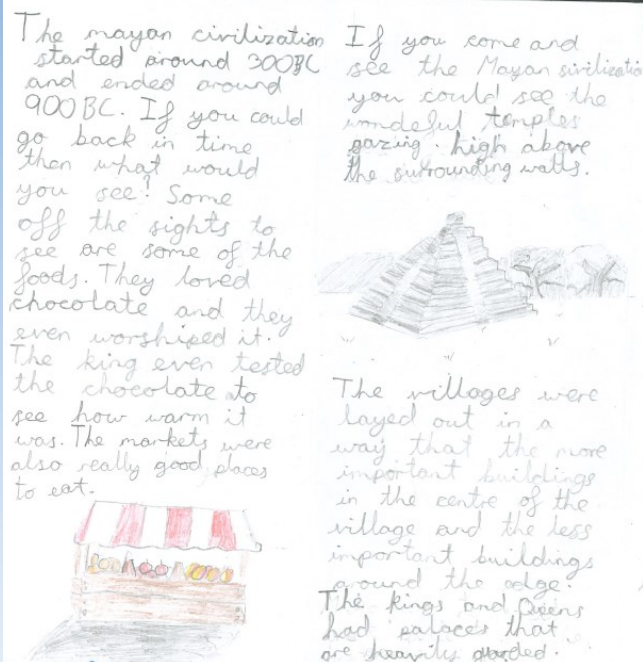 The mayan civilization
started around 300BC
and ended around
900BC. If you could
go back in time
then what would
you see? Some
off the sights to
see are some of the
foods. They loved
chocolate and they
even worshiped it.
The king even tested
the chocolate to
see how warm it
was. The markets were
also really good places
to eat.
If you come and
see the Mayan sivilizatio
you could see the
wondeful temples
gazing. high above
the surrounding walls.
The villages were
layed out in a
way that the more
important buildings
in the centre of the
village and the less
important buildings
around the edge.
The kings and Queens
had palaces that
are heavily guarded.